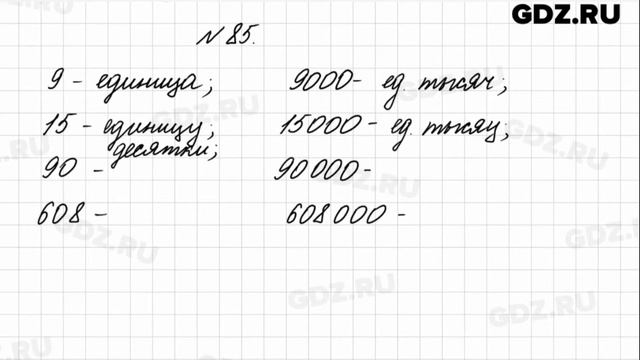 GDZ.RU
N 85.
9 - единица; 9000 - ед. тысяч;
15 - единицу; 15000 - ед. тысяу;
десятки;
90 - 90 000 -
608 - 608 000 -
GDZ.RU
GDZ.RU
GDZ.RU
GDZ.RU
GDZ.RU
GDZ.RU
GDZ.RU